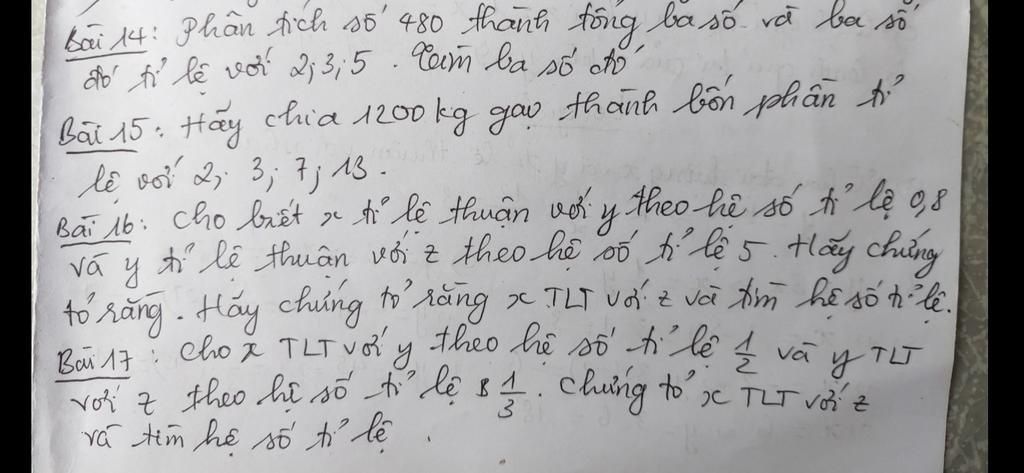 Bài 14: Phân tích số 480 thành tổng ba số và ba số
đó tỉ lệ với 2; 3; 5. Tìm ba số đó
Bài 15: Hãy chia 1200 kg gạo thành bốn phần tỉ
lệ với 2; 3; 7; 13.
Bài 16: Cho biết x tỉ lệ thuận với y theo hệ số tỉ lệ 0,8
và y tỉ lệ thuận với z theo hệ số tỉ lệ 5. Hãy chứng
tỏ rằng. Hãy chứng tỏ rằng x TLT với z và tìm hệ số tỉ lệ.
Bài 17: Cho x TLT với y theo hệ số tỉ lệ 1/2 và y TLT
với z theo hệ số tỉ lệ 1/3. Chứng tỏ x TLT với z
và tìm hệ số tỉ lệ.